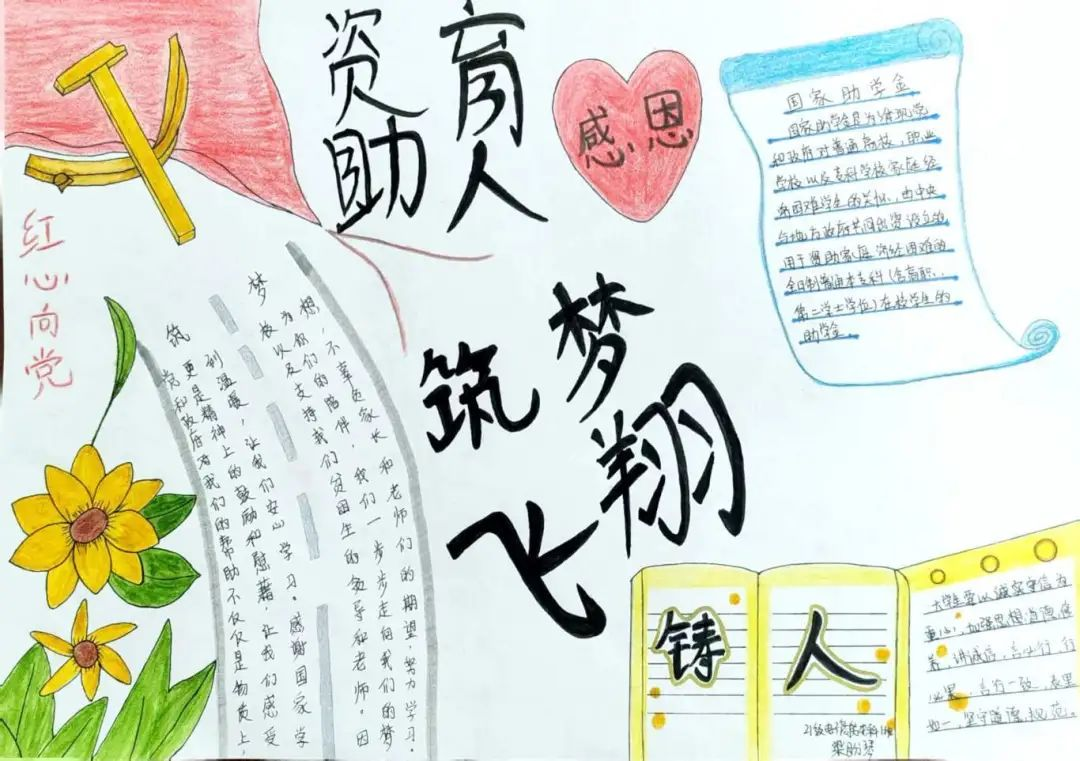 资助
育人
感恩
国家助学金
国家助学金是为体现党
和政府对普通高校、职业
学校以及专科学校家庭经
济困难学生的关怀,由中央
与地方政府共同出资设立的
用于资助家庭济经困难的
全日制普通本专科(含高职、
第二学士学位)在校学生的
助学金。
红心向党
筑
党和政府对我们的帮助不仅仅是物质上,
更是精神上的鼓励和慰藉,让我们感受
到温暖,让我们安心学习。感谢国家学
梦
校以及支持我们贫困生的领导和老师。因
为你们的陪伴,我们一步步走向我们的梦
想,不辜负家长和老师们的期望,努力学习。
筑梦
飞翔
铸人
大学生要以诚实守信为
重心,加强思想道德修
养,讲诚信,言必行,行
必果,言行一致,表里
如一,坚守道德规范。